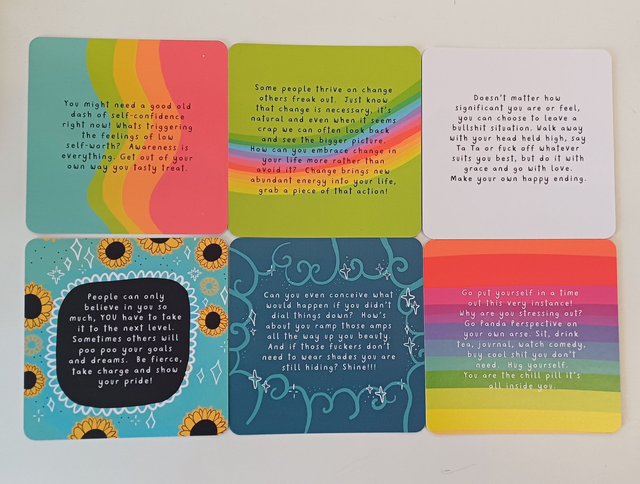 You might need a good old
dash of self-confidence
right now! Whats triggering
the feelings of low
self-worth? Awareness is
everything. Get out of your
own way you tasty treat.
Some people thrive on change
others freak out. Just know
that change is necessary, it's
natural and even when it seems
crap we can often look back
and see the bigger picture.
How can you embrace change in
your life more rather than
avoid it? Change brings new
abundant energy into your life,
grab a piece of that action!
Doesn't matter how
significant you are or feel,
you can choose to leave a
bullshit situation. Walk away
with your head held high, say
Ta Ta or fuck off whatever
suits you best, but do it with
grace and go with love.
Make your own happy ending.
People can only
believe in you so
much, YOU have to take
it to the next level.
Sometimes others will
poo poo your goals
and dreams. Be fierce,
take charge and show
your pride!
Can you even conceive what
would happen if you didn't
dial things down? How's
about you ramp those amps
all the way up you beauty.
And if those fuckers don't
need to wear shades you are
still hiding? Shine!!!
Go put yourself in a time
out this very instance!
Why are you stressing out?
Go Panda Perspective on
your own arse. Sit, drink
tea, journal, watch comedy,
buy cool shit you don't
need. Hug yourself.
You are the chill pill it's
all inside you.